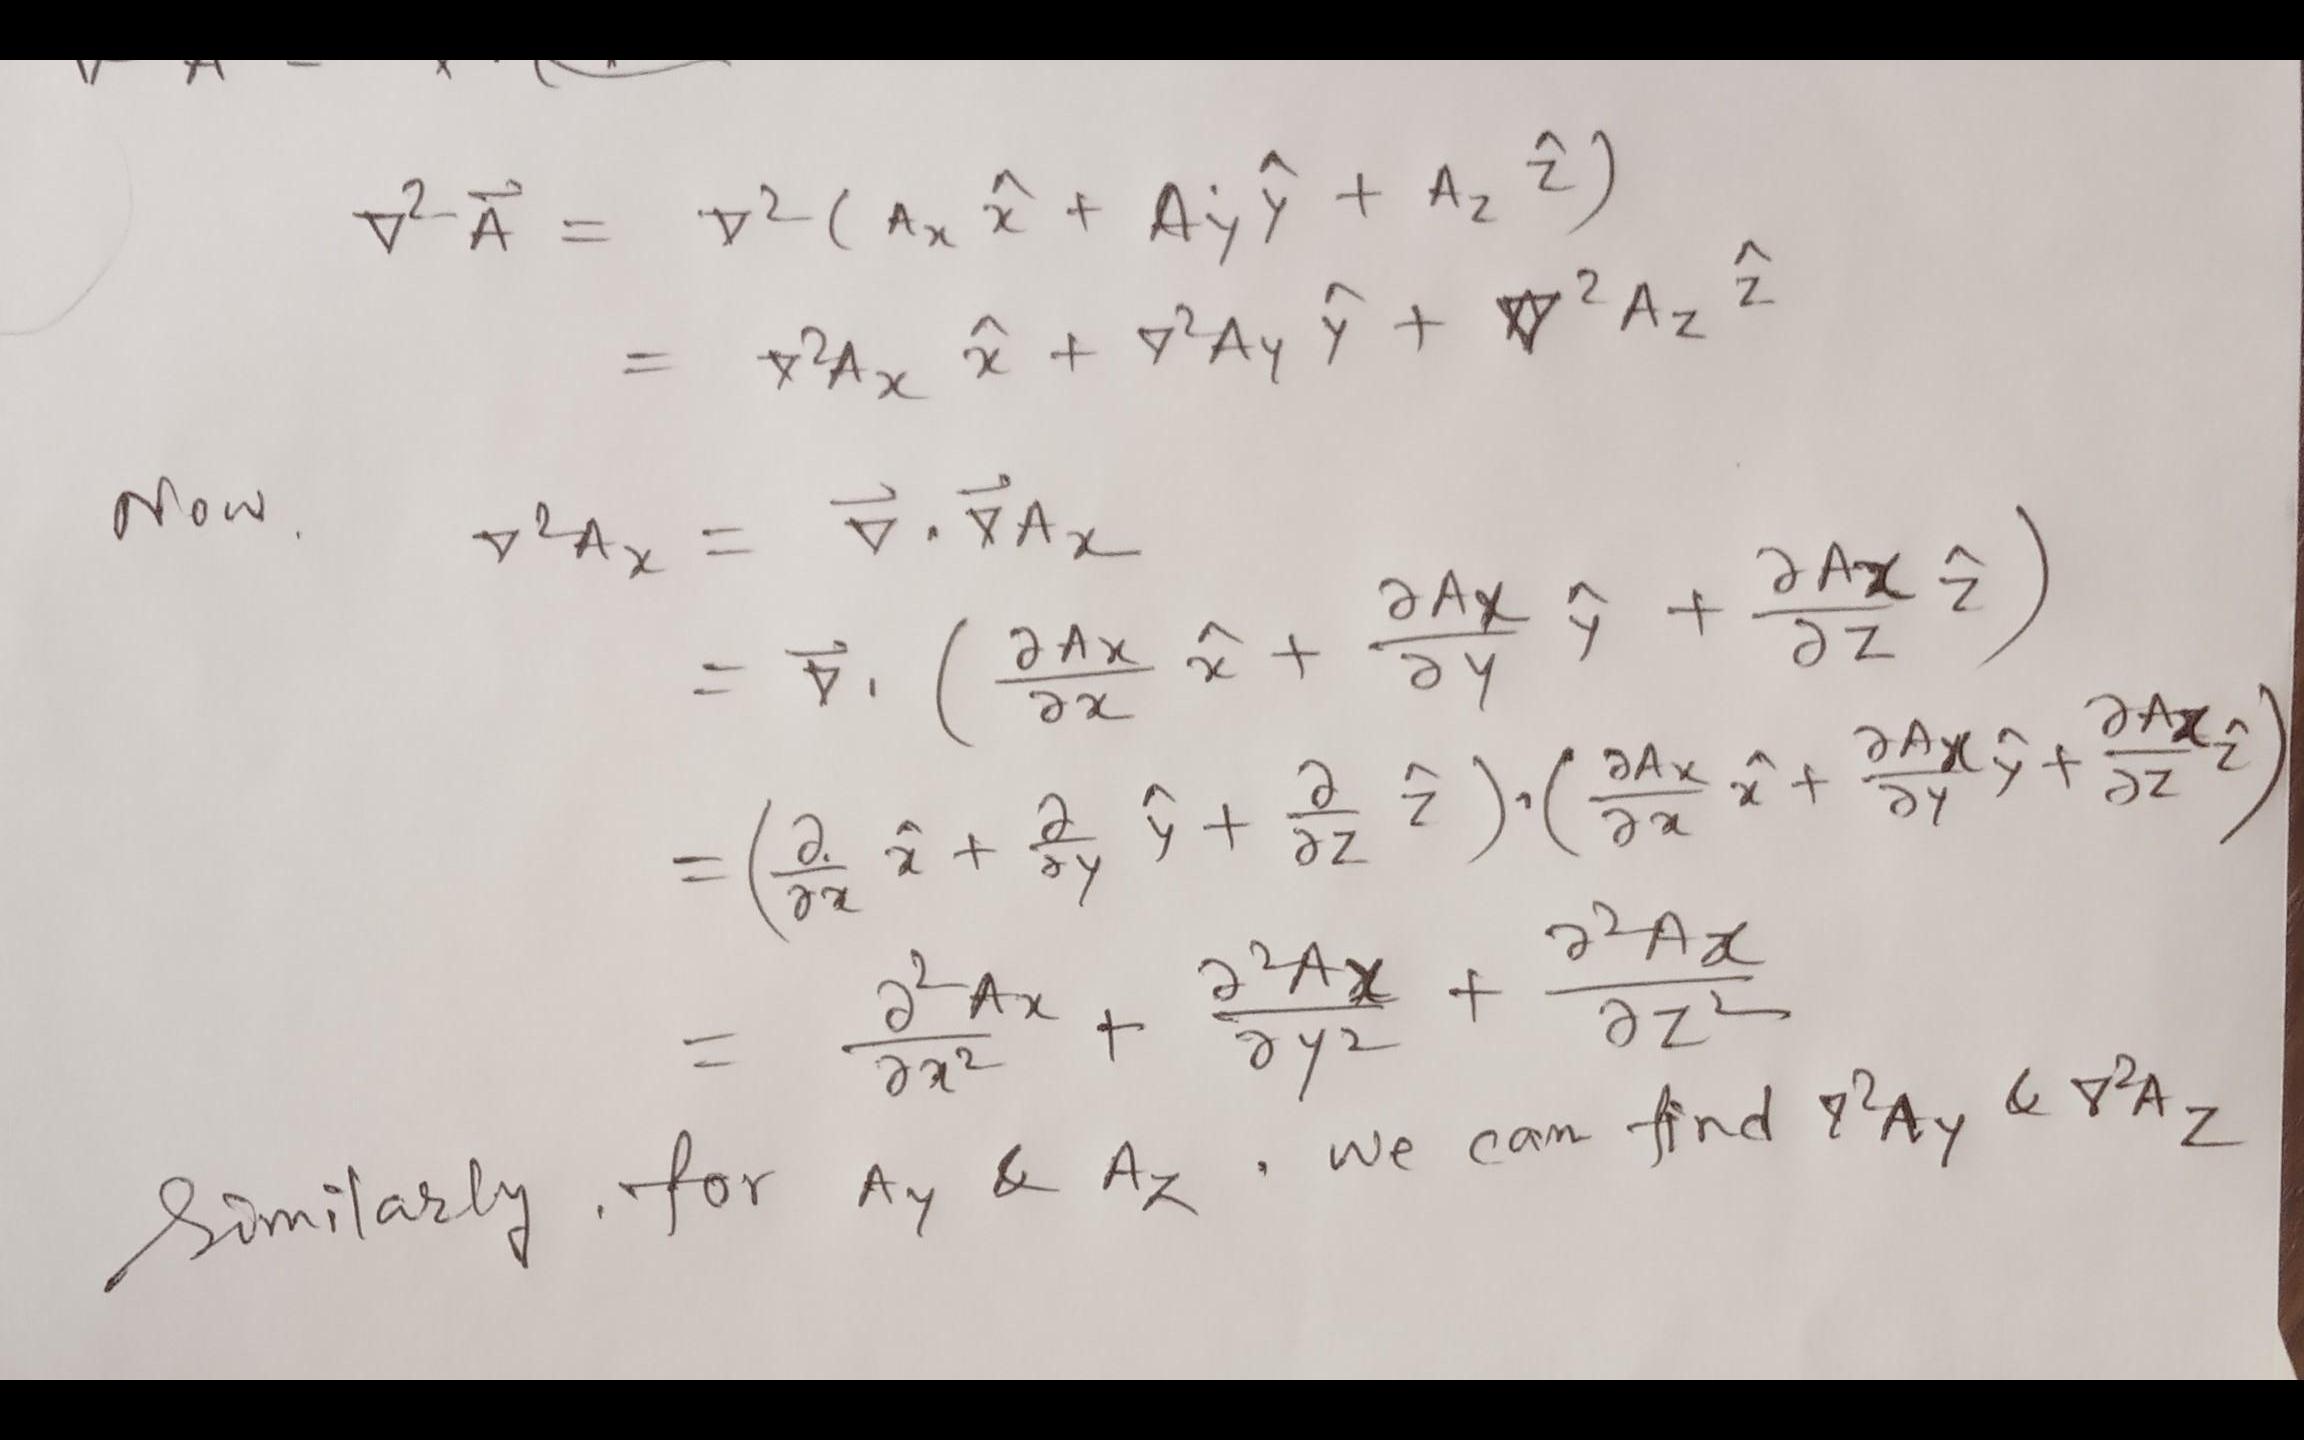 ∇² A⃗ = ∇² ( Aₓ x̂ + A_y ŷ + A_z ẑ )
= ∇²Aₓ x̂ + ∇²A_y ŷ + ∇²A_z ẑ
Now. ∇²Aₓ = ∇⃗ . ∇⃗Aₓ
= ∇⃗ . ( ∂Aₓ/∂x x̂ + ∂Aₓ/∂y ŷ + ∂Aₓ/∂z ẑ )
= ( ∂/∂x x̂ + ∂/∂y ŷ + ∂/∂z ẑ ) . ( ∂Aₓ/∂x x̂ + ∂Aₓ/∂y ŷ + ∂Aₓ/∂z ẑ )
= ∂²Aₓ/∂x² + ∂²Aₓ/∂y² + ∂²Aₓ/∂z²
Similarly . for A_y & A_z . we can find ∇²A_y & ∇²A_z